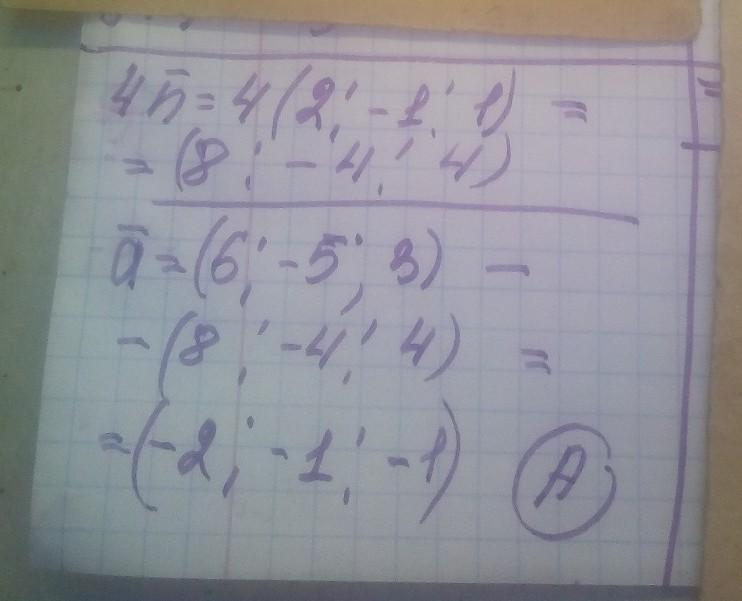 4n̄ = 4(2; -1; 1) =
= (8; -4; 4)
ā = (6; -5; 3) -
- (8; -4; 4) =
= (-2; -1; -1) A